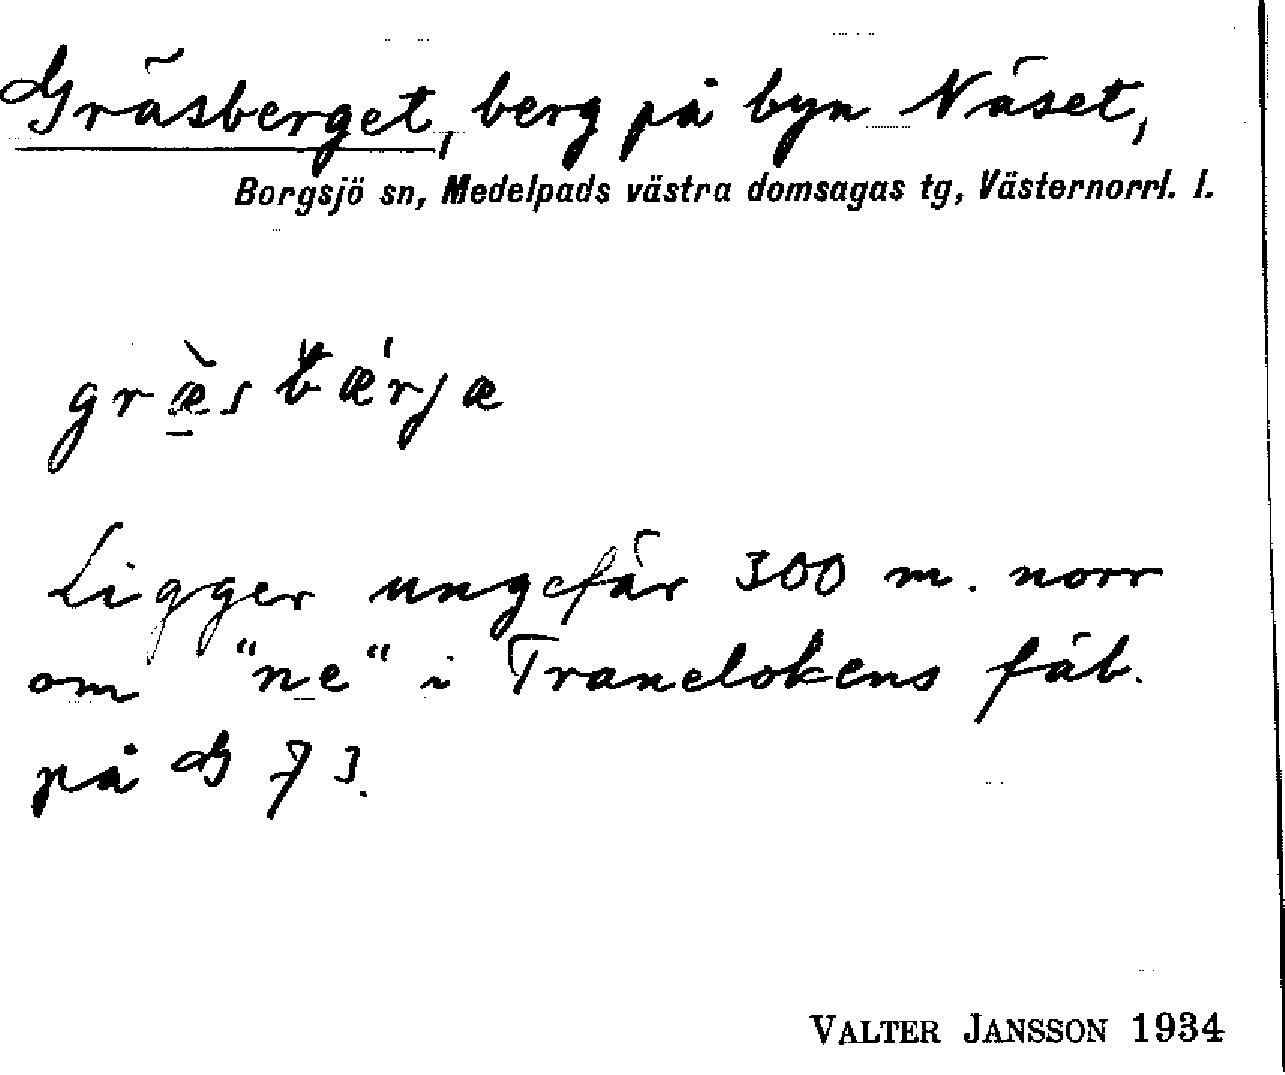 Gräsberget, berg på byn Näset,
Borgsjö sn, Medelpads västra domsagas tg, Västernorrl. l.
græ̀sbæŕjæ
Ligger ungefär 300 m. norr
om "ne" i Tranelokens fäb.
på G 73.
VALTER JANSSON 1934